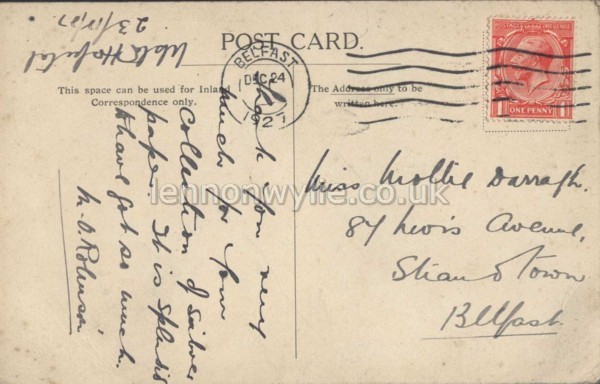 POST CARD.
This space can be used for Inland
Correspondence only.
The Address only to be
written here.
BELFAST
DEC 24
1927
ONE PENNY
Hospital
23/12/27
Thank you very
much for your
Collection of Silver
paper. It is splendid
to have got so much.
M. O. Robinson
Miss Mollie Darragh.
87 Lewis Avenue,
Strandtown
Belfast.
lennonwylie.co.uk